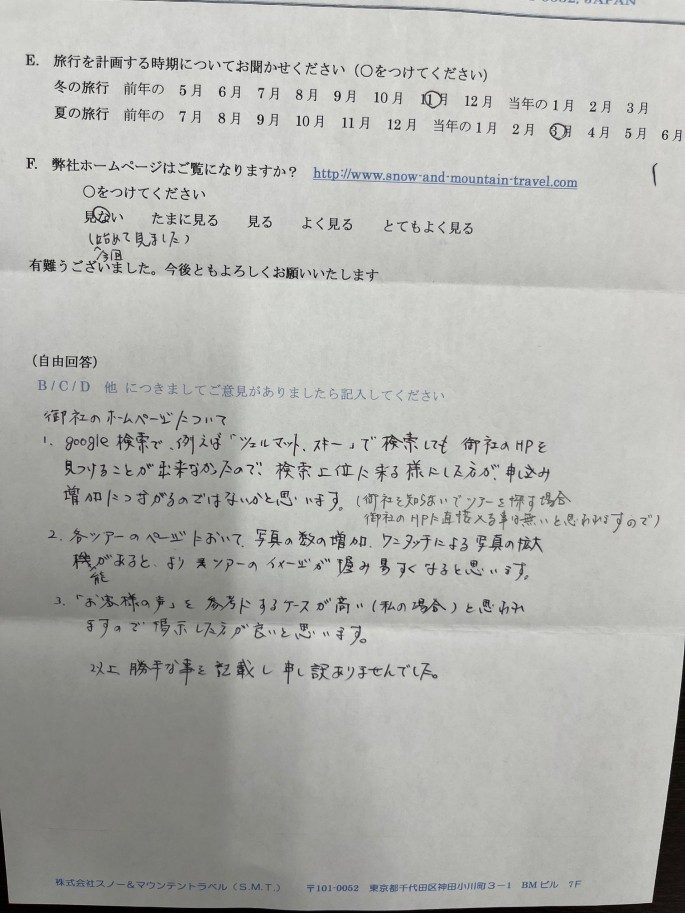 0052, JAPAN
E. 旅行を計画する時期についてお聞かせください（○をつけてください）
冬の旅行 前年の 5月 6月 7月 8月 9月 10月 11月 12月 当年の1月 2月 3月
夏の旅行 前年の 7月 8月 9月 10月 11月 12月 当年の1月 2月 3月 4月 5月 6月
F. 弊社ホームページはご覧になりますか？ http://www.snow-and-mountain-travel.com
○をつけてください
見ない たまに見る 見る よく見る とてもよく見る
(今回始めて見ました)
有難うございました。今後ともよろしくお願いいたします
（自由回答）
B/C/D 他 につきましてご意見がありましたら記入してください
御社のホームページについて
1. google検索で、例えば「ツェルマット、スキー」で検索しても 御社のHPを
見つけることが出来なかったので、検索上位に来る様にした方が、申込み
増加につながるのではないかと思います。(御社を知らないでツアーを探す場合
御社のHPに直接入る事は無いと思われますので)
2. 各ツアーのページにおいて、写真の数の増加、ワンタッチによる写真の拡大
機能があると、よりツアーのイメージが掴み易くなると思います。
3. 「お客様の声」を参考にするケースが高い(私の場合)と思われ
ますので掲示した方が良いと思います。
以上 勝手な事を記載し申し訳ありませんでした。
株式会社スノー&マウンテントラベル（S.M.T.） 〒101-0052 東京都千代田区神田小川町3－1 BMビル 7F